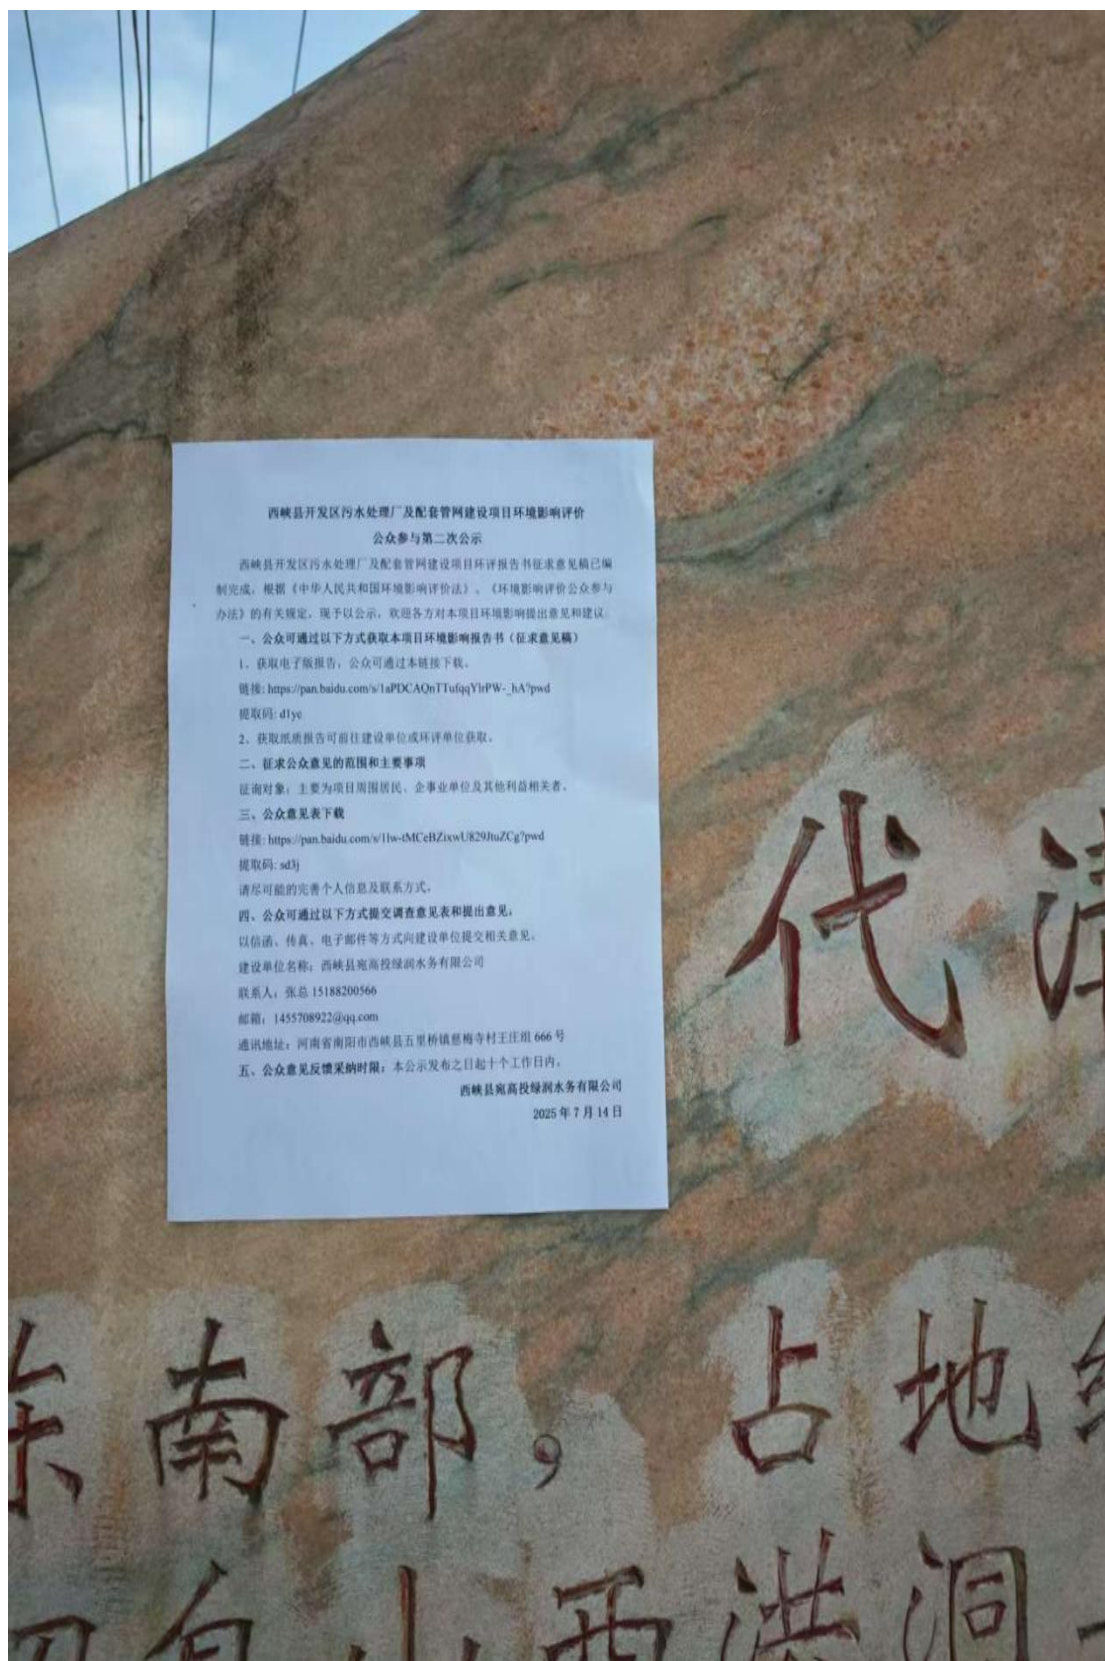 西峡县开发区污水处理厂及配套管网建设项目环境影响评价
公众参与第二次公示
西峡县开发区污水处理厂及配套管网建设项目环评报告书征求意见稿已编
制完成，根据《中华人民共和国环境影响评价法》、《环境影响评价公众参与
办法》的有关规定，现予以公示，欢迎各方对本项目环境影响提出意见和建议。
一、公众可通过以下方式获取本项目环境影响报告书（征求意见稿）
1、获取电子版报告，公众可通过本链接下载。
链接: https://pan.baidu.com/s/1aPDCAQnTTufqqYlrPW-_hA?pwd
提取码: d1yc
2、获取纸质报告可前往建设单位或环评单位获取。
二、征求公众意见的范围和主要事项
征询对象：主要为项目周围居民、企事业单位及其他利益相关者。
三、公众意见表下载
链接: https://pan.baidu.com/s/1lw-tMCeBZixwU829JtuZCg?pwd
提取码: sd3j
请尽可能的完善个人信息及联系方式。
四、公众可通过以下方式提交调查意见表和提出意见：
以信函、传真、电子邮件等方式向建设单位提交相关意见。
建设单位名称：西峡县宛高投绿润水务有限公司
联系人：张总 15188200566
邮箱：1455708922@qq.com
通讯地址：河南省南阳市西峡县五里桥镇慈梅寺村王庄组 666 号
五、公众意见反馈采纳时限：本公示发布之日起十个工作日内。
西峡县宛高投绿润水务有限公司
2025 年 7 月 14 日
代清
东南部，占地
自山西洪洞